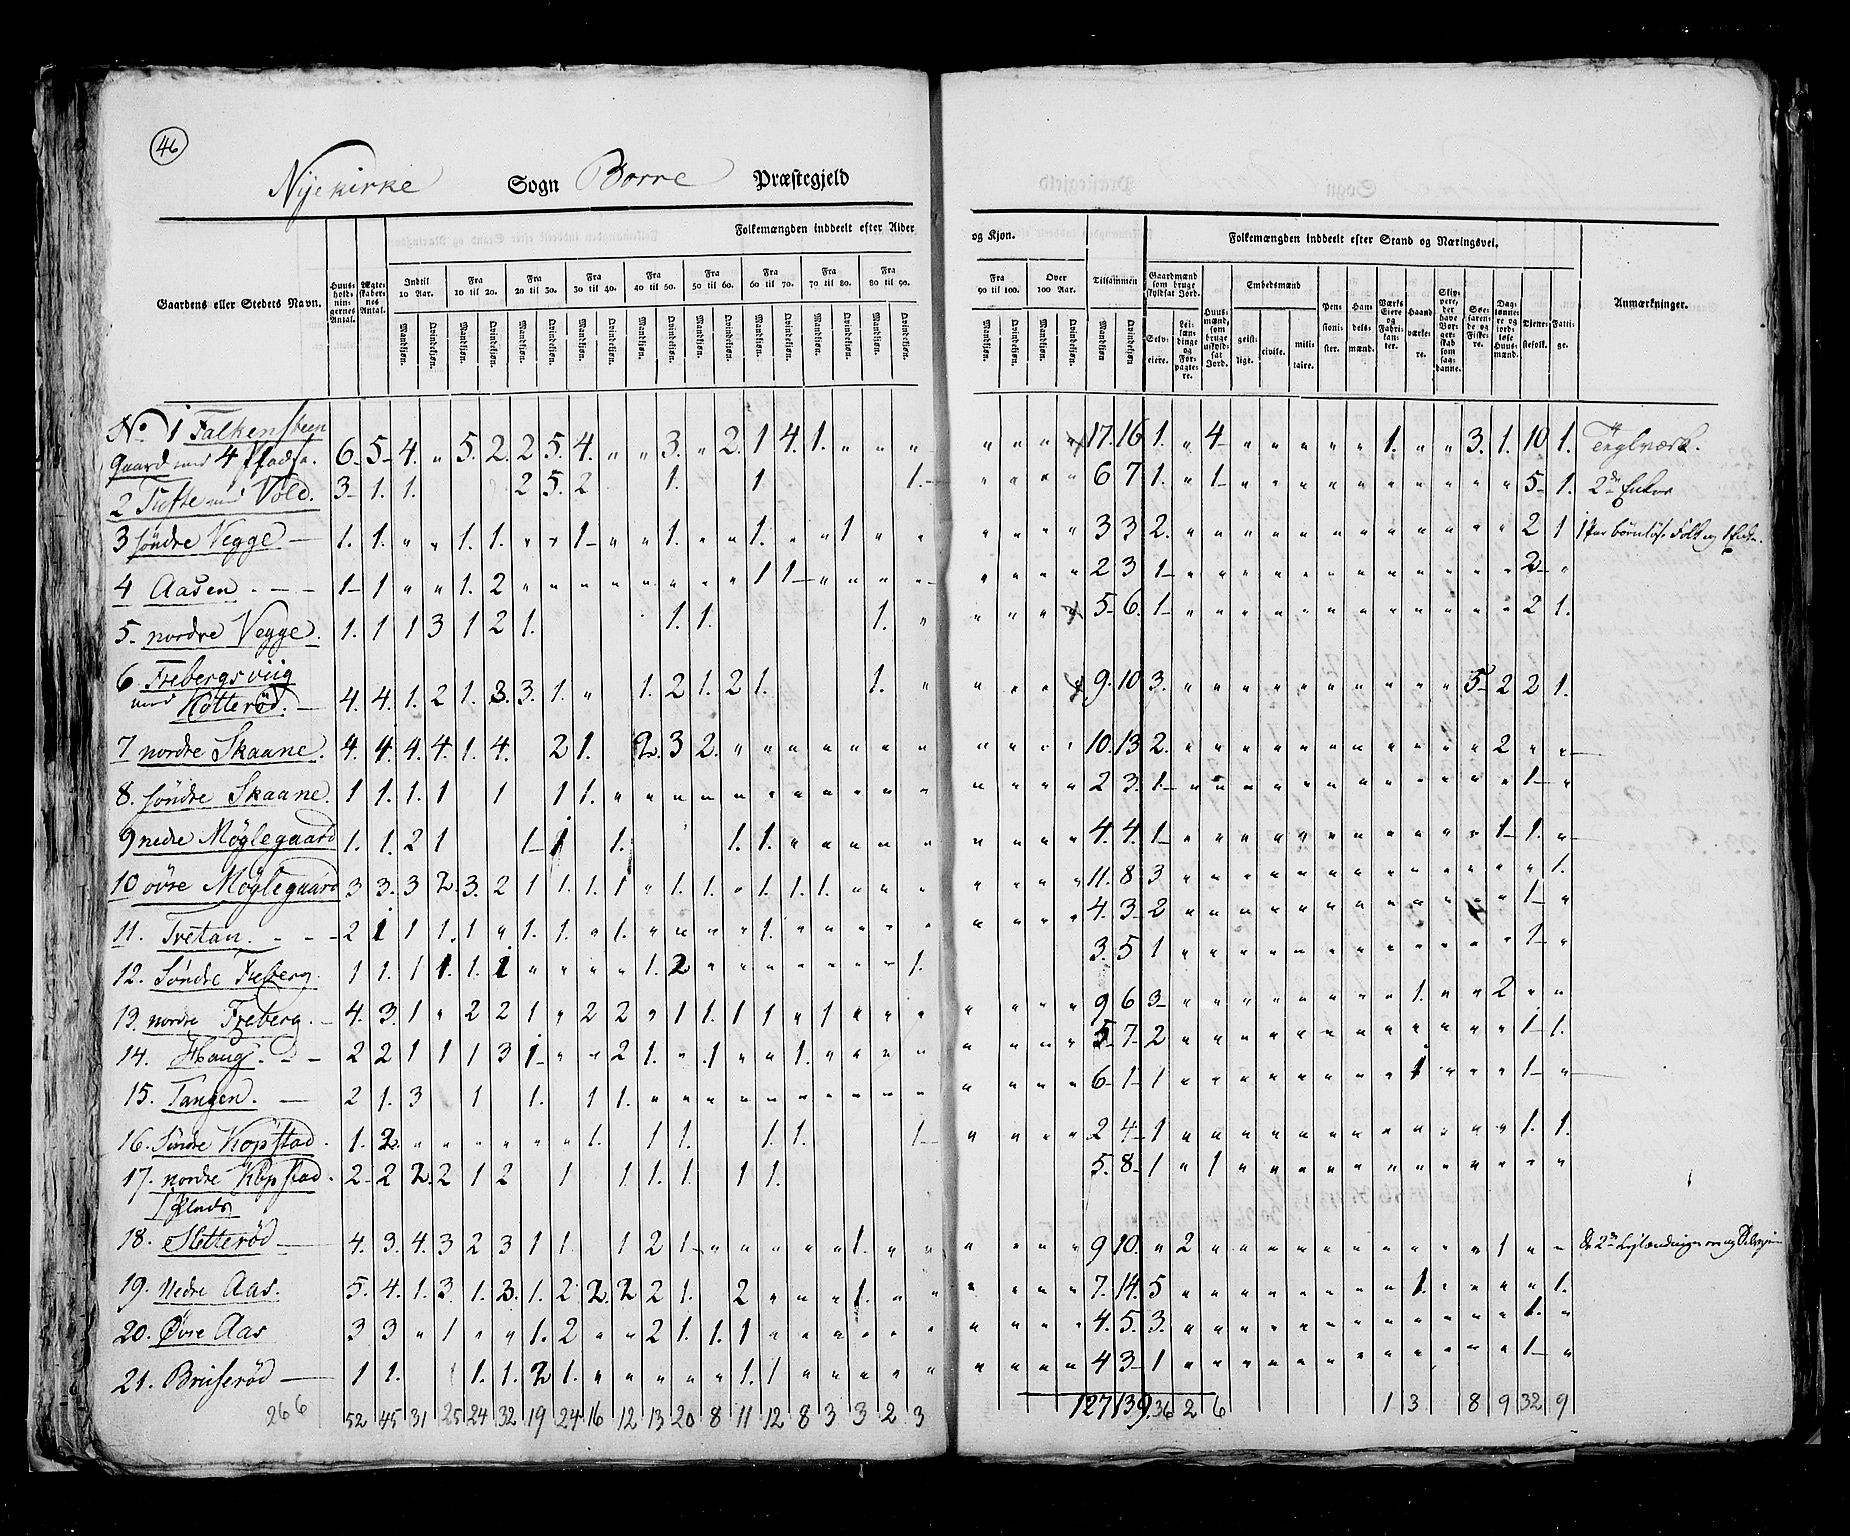 46
Nyekirke Sogn Borre Præstegjeld
Gaardens eller Stedets Navn. Huusholdningernes Antal. Ægteskabernes Antal. Folkemængden inddeelt efter Alder og Kjøn. Tilsammen Folkemængden inddeelt efter Stand og Næringsvei. Anmærkninger.
Indtil 10 Aar. Fra 10 til 20. Fra 20 til 30. Fra 30 til 40. Fra 40 til 50. Fra 50 til 60. Fra 60 til 70. Fra 70 til 80. Fra 80 til 90. Fra 90 til 100. Over 100 Aar.
Mandkjøn. Qvindekjøn. Mandkjøn. Qvindekjøn. Mandkjøn. Qvindekjøn. Mandkjøn. Qvindekjøn. Mandkjøn. Qvindekjøn. Mandkjøn. Qvindekjøn. Mandkjøn. Qvindekjøn. Mandkjøn. Qvindekjøn. Mandkjøn. Qvindekjøn. Mandkjøn. Qvindekjøn. Mandkjøn. Qvindekjøn. Mandkjøn. Qvindekjøn.
Gaardmænd som bruge skyldsat Jord. Selveiere. Leilændinge og Forpagtere. Huusmænd, som bruge uskyldsat Jord. Embedsmænd geistlige. civile. militaire. Pensionister. Handelsmænd. Værks Eiere og Fabrikanter. Haandværkere. Søefarende og Fiskere. Daglønnere og jordløse Huusmænd. Tjenestefolk. Fattige.
No 1 Falkensteen
Gaard med 4 Pladse. 6. 5. 4. " 5. 2. 2 5. 4. " " 3. " 2. 1 4. 1. " " " " " " 17. 16 1. " 4 " " " " " 1. " " 3. 1. 10 1. Teglværk.
2 Tufte med Vold. 3 1. 1. 2 5. 2 1. 1 1. " " " " 6 7 1. " 1 " " " " " " " " " " 5 1. 2de Enker
3 søndre Vegge 1. 1. " " 1. 1. " " 1 " " 1. " " 1. " " 1 " " " " " " 3 3 2. " " " " " " " " " " " " 2 1
4 Aasen 1 1 " " 1. 2 " " " " " " " " 1 1 " " " " " " " " 2 3 1 " " " " " " " " " " " " 2 "
5. nordre Vegge. 1. 1 1 3 1 2 1. 1. 1. 1. " " " " 5 6. 1 " " " " " " " " " " " " 2 1.
6 Frebergsviig
med Kotterød. 4. 4. 1. 2 1. 3. 3. 1. " 1. 2 1. 2 1. 1. " " " " 9. 10 3. " " " " " " " " " " 5 2 2 1.
7 nordre Skaane. 4. 4. 4. 4. 1. 4. 2 1. 2. 3 2. " " " " " " " " " " " 10. 13 2. " " " " " " " " " " " 2 " "
8. søndre Skaane. 1 1. 1. 1 1 1 1. " " " " " " " " " " " " " " " 2 3. 1 " " " " " " " " " " " " 1 "
9 nedre Møglegaard 1. 1. 2 1 1 1 1. 1. 1. " " " " " " " " 4. 4. 1 " " " " " " " " " " " 1 1. "
10 øvre Møglegaard 3 3. 3 2. 3. 2 1 1. 1. 1 " 1. 1. " 1. 1. 1. " " " " " " " 11. 8 3 " " " " " " " " " " " " " 1.
11. Tretan. 2 1 1 1. 1 " 1. 1. " 1. " " " " 1. " " " " " " " " " 4. 3 2 " " " " " " " " " " " " 1 "
12. Søndre Freberg. 1 1. 1 1. 1. 1 " " " " 1. 2 " " " " " " " 1. 3. 5 1 " " " " " " " " " " " " 1 "
13. nordre Freberg. 4. 3. 1 " 2 2 1 " 2 2 " 1 1. 1 1 " 1 " " " " " " " 9 6 3 " " " " " " " 1. " " 2 " "
14. Haug. 2 2 1 1 1 3 1 " " 2 1. " 1 " " 1. " " " " " " " " 5 7 2 " " " " " " " " " " " " 1 1.
15. Tangen. 2 1. 3 1 1. 1 1. " " " " " " " " " " " " " " 6 1 1 " " " " " " " 1 " " " 1 "
16. Søndre Kopstad. 1. 2 " " " " " " 1. 1 1. 1. 1. 1. " " " " 2 4 1 " " " " " " " " " " " " 1. 1.
17. nordre Kopstad. 2 2 2. 2 1 2 1 1. 1. 1. 1 1. 5. 8 1 " 1 " " " " " " " " " " " "
1 Plads
18. Sletterød 4. 3. 4. 3 2 3 1 1. 1 2 1. " " " " " 1. " " " " " " 9 10. " 2 " " " " " " " " " " 1 " "
19. Nedre Aas. 5. 4. 1. 3. 1. 3. 1. 2 2. 2 2 1. 2 " " " 1. " " " " " " 7. 14. 5 " " " " " " " " 1. " " " " 1.
20. Øvre Aas 3 3 " 1 " " 1. 2 " " 2 1. 1. 1 " " " " " " " " " " 4. 5. 3. " " " " " " " " " " " " 1. "
21. Bruserød 1 1. 1. 1. 2 1. " " " " " 1. 1 " " " " " " " " " 4 3 1 " " " " " " " " " " " " 1 "
266 52 45 31 25 24 32 19 24 16 12 13 20 8 11 12 8 3 3 2 3 127 139. 36 2 6 1 3 8 9 32 9